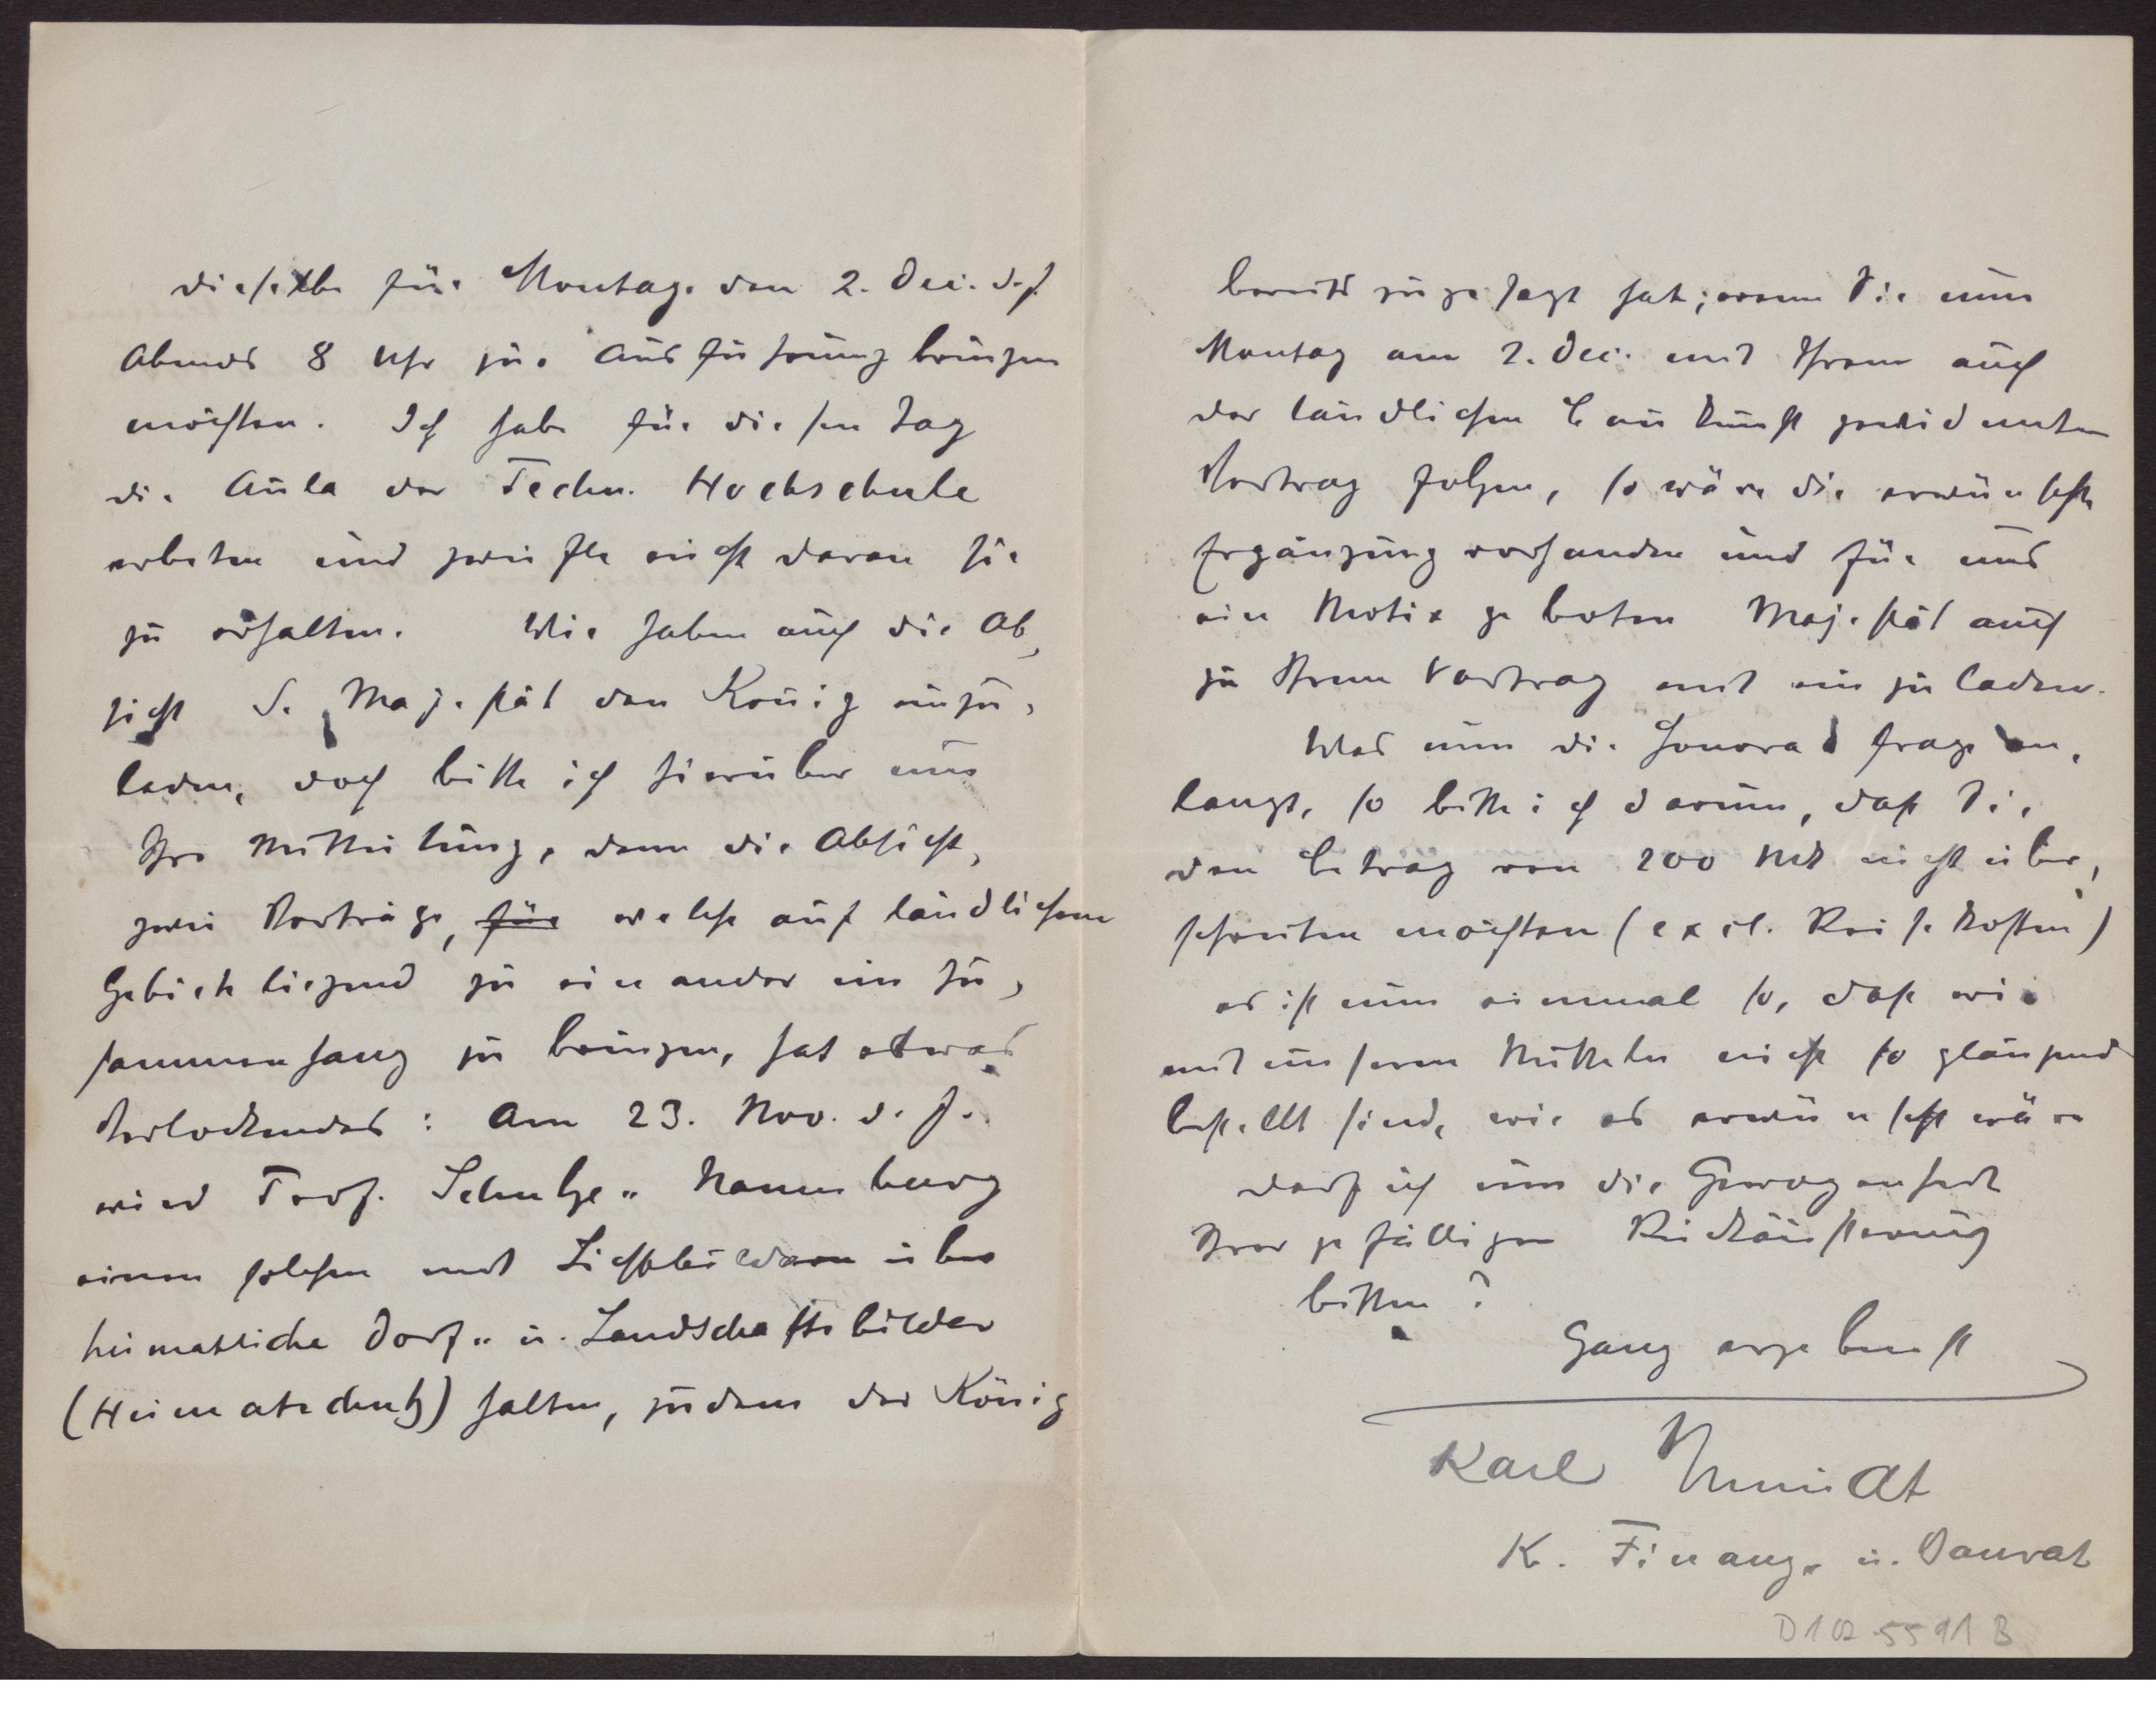 dieselbe für Montag den 2. Dec. d. J.
Abends 8 Uhr zur Ausführung bringen
möchten. Ich habe für diesen Tag
die Aula der Techn. Hochschule
erbeten und zweifle nicht daran sie
zu erhalten. Wir haben auch die Ab-
sicht S. Majestät den König einzu-
laden, doch bitte ich hierüber um
Ihre Mitteilung, denn die Absicht,
zwei Vorträge, für welche auf ländlichem
Gebiete liegend zu einander in Zu-
sammenhang zu bringen, hat etwas
Verlockendes: Am 23. Nov. d. J.
wird Prof. Schultze-Naumburg
einen solchen mit Lichtbildern über
heimatliche Dorf- u. Landschaftsbilder
(Heimatschutz) halten, zu dem der König
bereits zugesagt hat; wenn Sie nun
Montag am 2. Dec. mit Ihrem auch
der ländlichen Baukunst gewidmeten
Vortrag folgen, so wäre die erwünschte
Ergänzung vorhanden und für uns
ein Motiv geboten Majestät auch
zu Ihrem Vortrag mit einzuladen.
Was nun die Honorarfrage an-
langt, so bitte ich darum, daß Sie
den Betrag von 200 Mk nicht über-
schreiten möchten (excl. Reisekosten)
es ist nun einmal so, daß wir
mit unseren Mitteln nicht so glänzend
bestellt sind, wie es erwünscht wäre
Darf ich um die Gewogenheit
Ihrer gefälligen Rückäußerung
bitten?
Ganz ergebenst
Karl Schmidt
K. Finanz- u. Baurat
D 102 5591 B